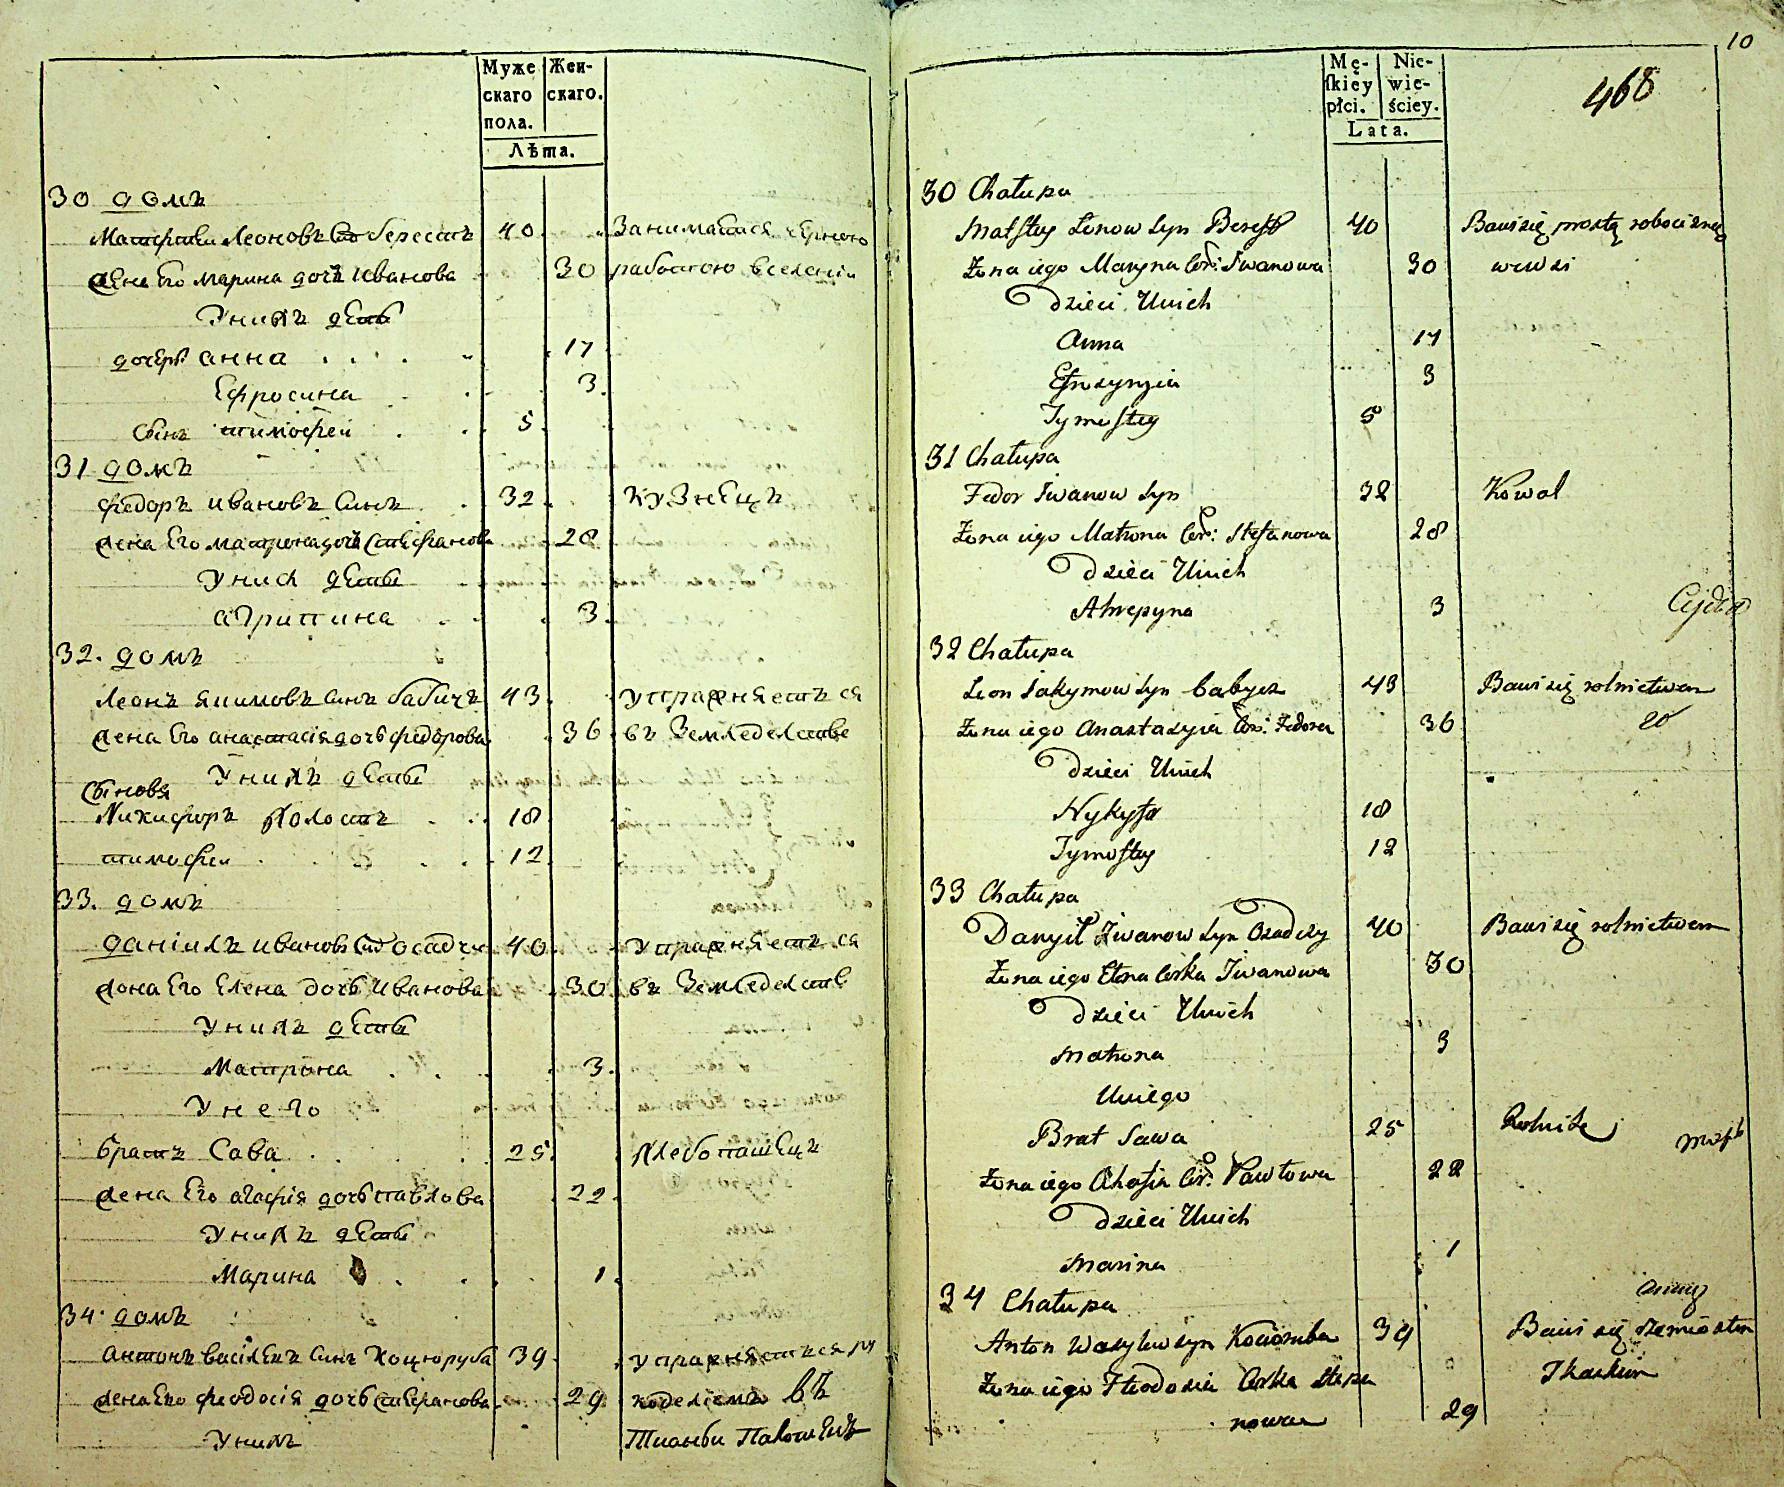 Муже Жен-
скаго скаго.
пола.
Лѣта.
30 домъ
Матфей Леоновъ Берестъ 40 Занимаетъся чорною
жена Его марина дочь Иванова 30 работою вселенiи
Унихъ дети
дочеръ анна 17
Ефросина 3
Сынъ тимофей 5
31 домъ
федоръ ивановъ Синъ 32 Кузнецъ
жена Его матрона дочь Стефанова 28
Униx дети
агрипина 3
32. домъ
Леонъ якимовъ синъ бабичъ 43 упражняетъ ся
жена Его анастасiя дочь федорова 36 въ Земледелстве
Унихъ дети
Сыновя
Никифоръ Холостъ 18
тимофей 12
33. домъ
данiилъ ивановъ осадчи 40 упражняетъ ся
жона Его Елена дочь Иванова 30 въ Земледелств
Унихъ дети
Матрона 3
У него
братъ Сава 25 Хлебопашецъ
жена Его агафiя дочь павлова 22
Унихъ дети
Марина 1
34 домъ
антонъ васiлевъ Синъ Коцюруба 39 упражняетъся ру
жена Его феодосiя дочь Стефанова 29 коделiемъ въ
Унихъ
10
Mę- Nie-
ſkiey wie-
płci. ściey.
Lata.
468
30 Chałupa
Matftey Leonow Syn Berest 40 Bawi się prostą robocizną
Żona iego Maryna Cor: Iwanowa 30 wewsi
Dzieci Unich
Anna 17
Efrozynia 3
Tymoftey 5
31 Chałupa
Fedor Iwanow Syn 32 Kowal
Żona iego Matrona Cor: Stefanowa 28
Dzieci Unich
Ahrepyna 3
32 Chałupa
Leon Jakymow Syn Babycz 43 Bawi się rolnictwem
Żona iego Anastazyia Cor: Fedora 36
Dzieci Unich
Nykyfor 18
Tymoftey 12
33 Chałupa
Danyił Iwanow Syn Osadczy 40 Bawi się rolnictwem
Żona iego Elena Corka Iwanowa 30
Dzieci Unich
Matrona 3
Uniego
Brat Sawa 25 Rolnik
Żona iego Ahafia Cor: Pawłowa 22
Dzieci Unich
Marina 1
34 Chałupa
Anton Wasylew Syn Kociomba 39 Bawi się rzemiosłem
Żona iego Fteodosia Corka Stepa Tkackim
nowa 29